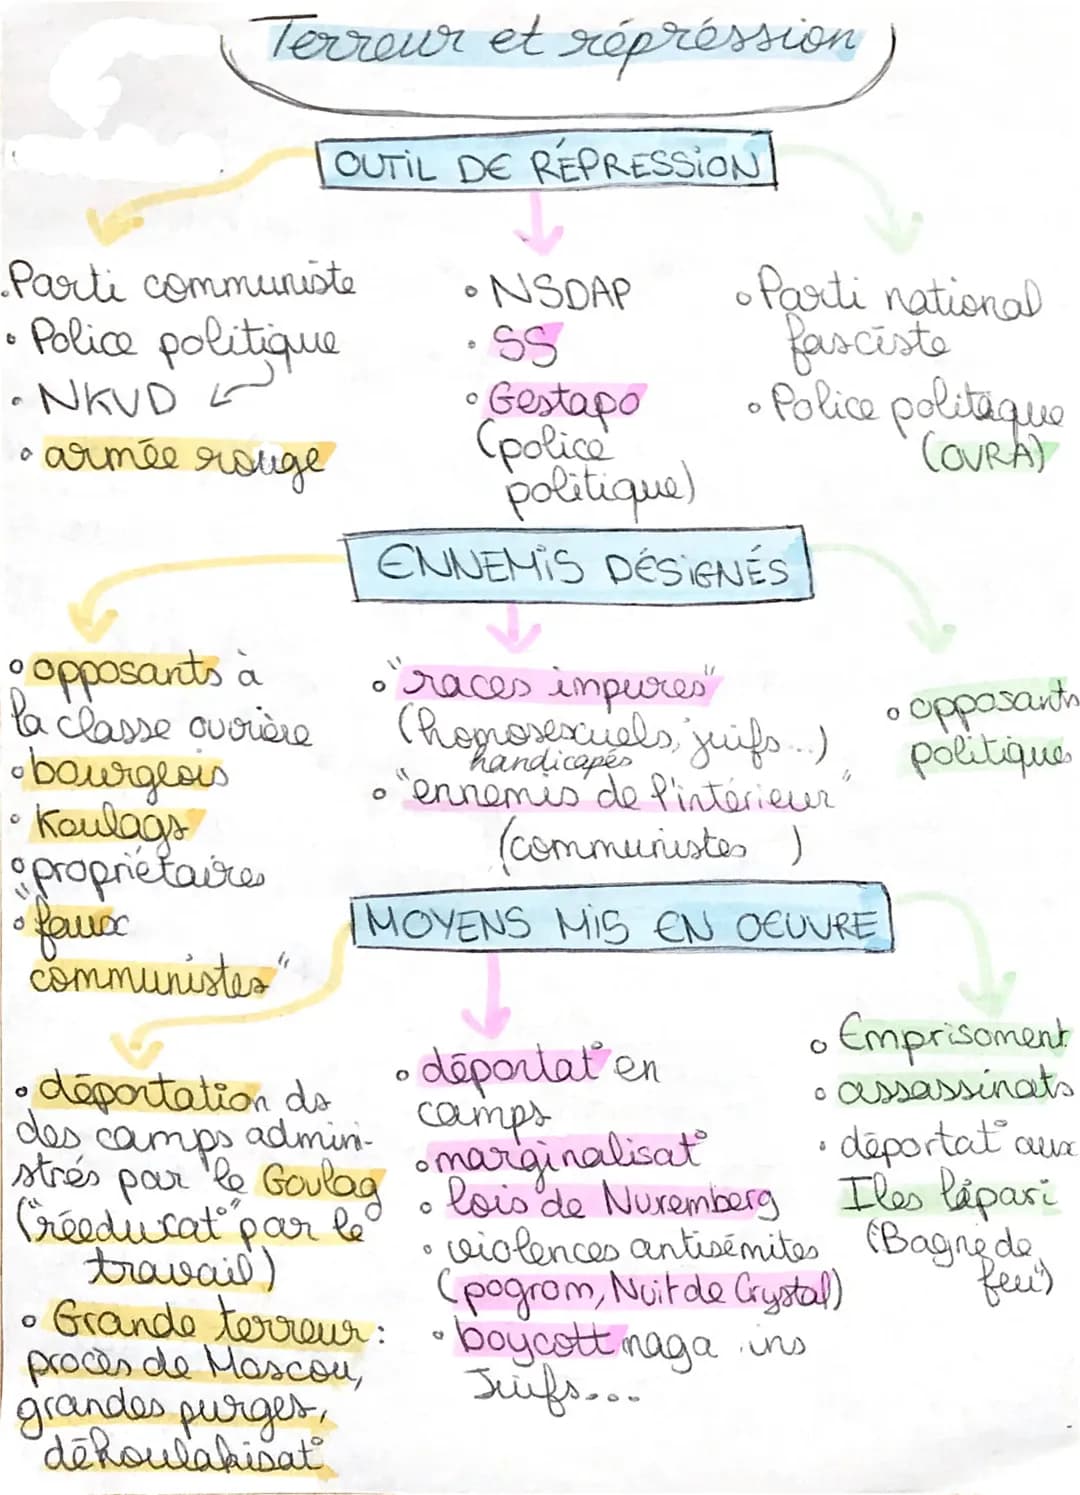 Terreur et répréssion
OUTIL DE RÉPRESSION
.Parti communiste
• Police politique
• NKVD
• armée rouge
• NSDAP
• SS
• Gestapo
(police
politique)
• Parti national
fasciste
• Police politique
(OVRA)
ENNEMIS DÉSIGNÉS
• opposants à
la classe ouvrière
• bourgeois
• Koulags
• propriétaires
• "faux
communistes"
• "races impures"
(homosexuels, juifs...)
handicapés
• "ennemis de l'intérieur"
(communistes )
• opposants
politiques
MOYENS MIS EN OEUVRE
• déportation ds
des camps admini-
strés par le Goulag
("rééducat° par le
travail)
• Grande terreur :
procès de Moscou,
grandes purges,
dékoulakisat°
• déportat° en
camps
• marginalisat°
• lois de Nuremberg
• violences antisémites
(pogrom, Nuit de Crystal)
• boycott maga ins
Juifs...
• Emprisoment
• assassinats
• déportat° aux
Iles lipari
("Bagne de
feu")